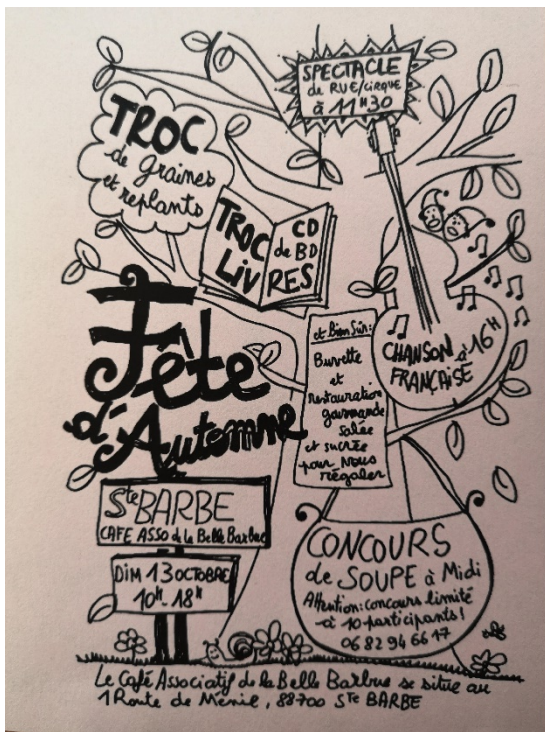 SPECTACLE
de RUE/CIRQUE
à 11H30
TROC
de graines
et replants
TROC
LIVRES
CD
de BD
Fête
d'Automne
et bien sûr:
Buvette
et
restauration
gourmande
salée
et sucrée
pour nous
régaler
CHANSON à 16H
FRANÇAISE
Ste BARBE
CAFE ASSO de la Belle Barbue
DIM 13 OCTOBRE
10H-18H
CONCOURS
de SOUPE à Midi
Attention: concours limité
à 10 participants!
06 82 94 66 17
Le Café Associatif de la Belle Barbue se situe au
1 Route de Ménil, 88700 Ste BARBE